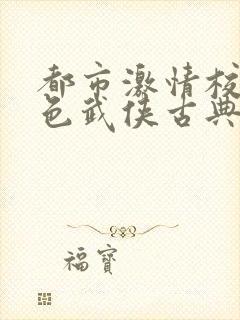 都市激情校
色武侠古典
福寶